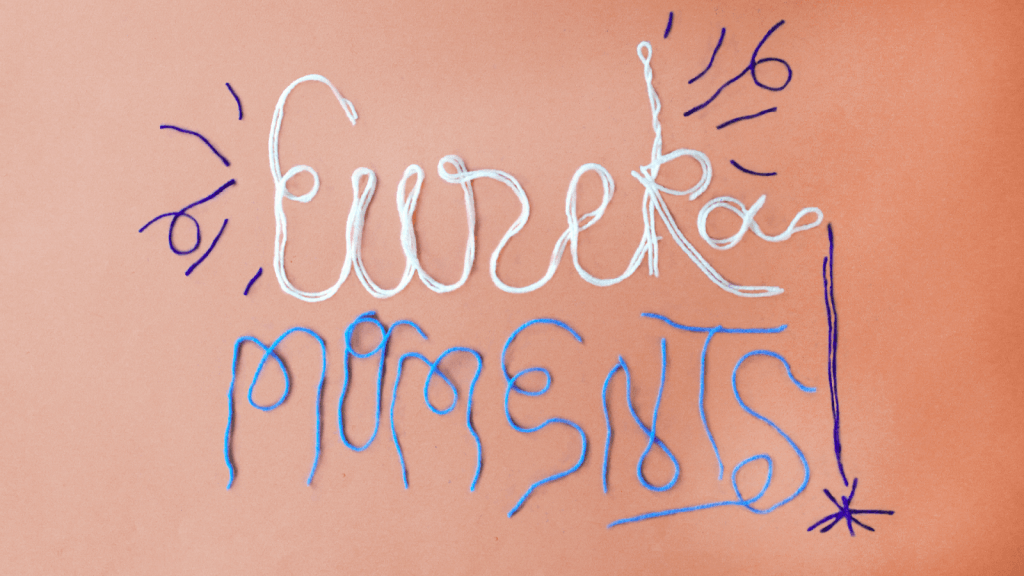 Eureka
MOMENTS!